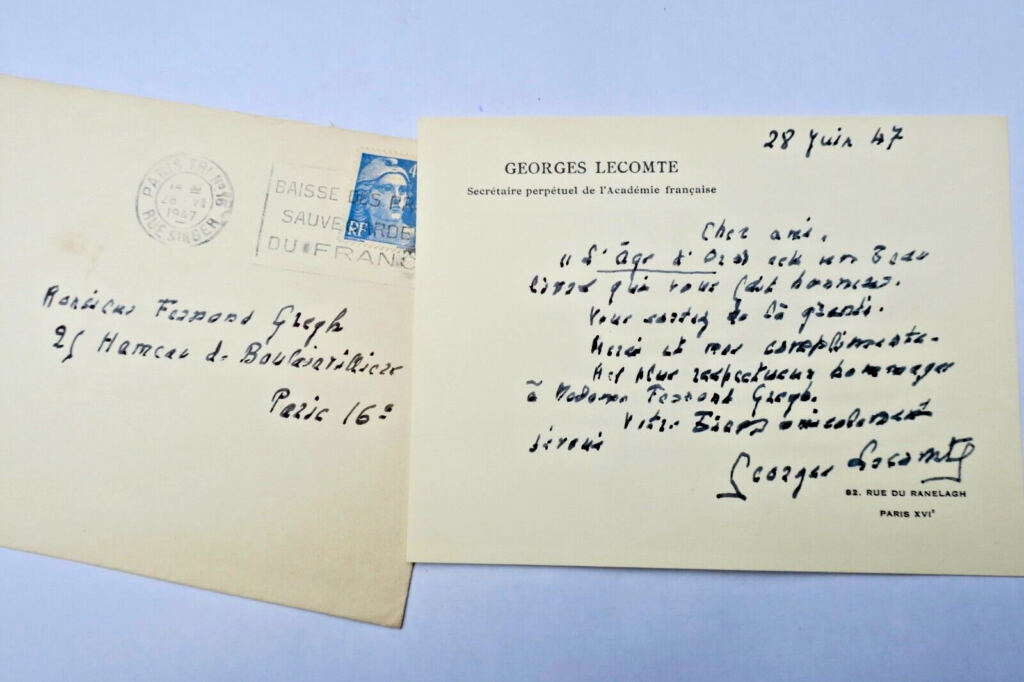 PARIS TRI Nº 16
28 VI
1947
RUE SINGER
BAISSE DES
SAUVEGARDE
DU FRANC
4
RF
Monsieur Fernand Gregh
25 Hameau de Boulainvilliers
Paris 16e
28 Juin 47
GEORGES LECOMTE
Secrétaire perpétuel de l'Académie française
Cher ami,
"L'Âge d'Or" est un beau
livre qui vous fait honneur.
Vous de là grandi.
Merci et mes compliments.
Mes plus respectueux hommages
à Madame Fernand Gregh.
Votre bien amicalement
dévoué
Georges Lecomte
82, RUE DU RANELAGH
PARIS XVIe